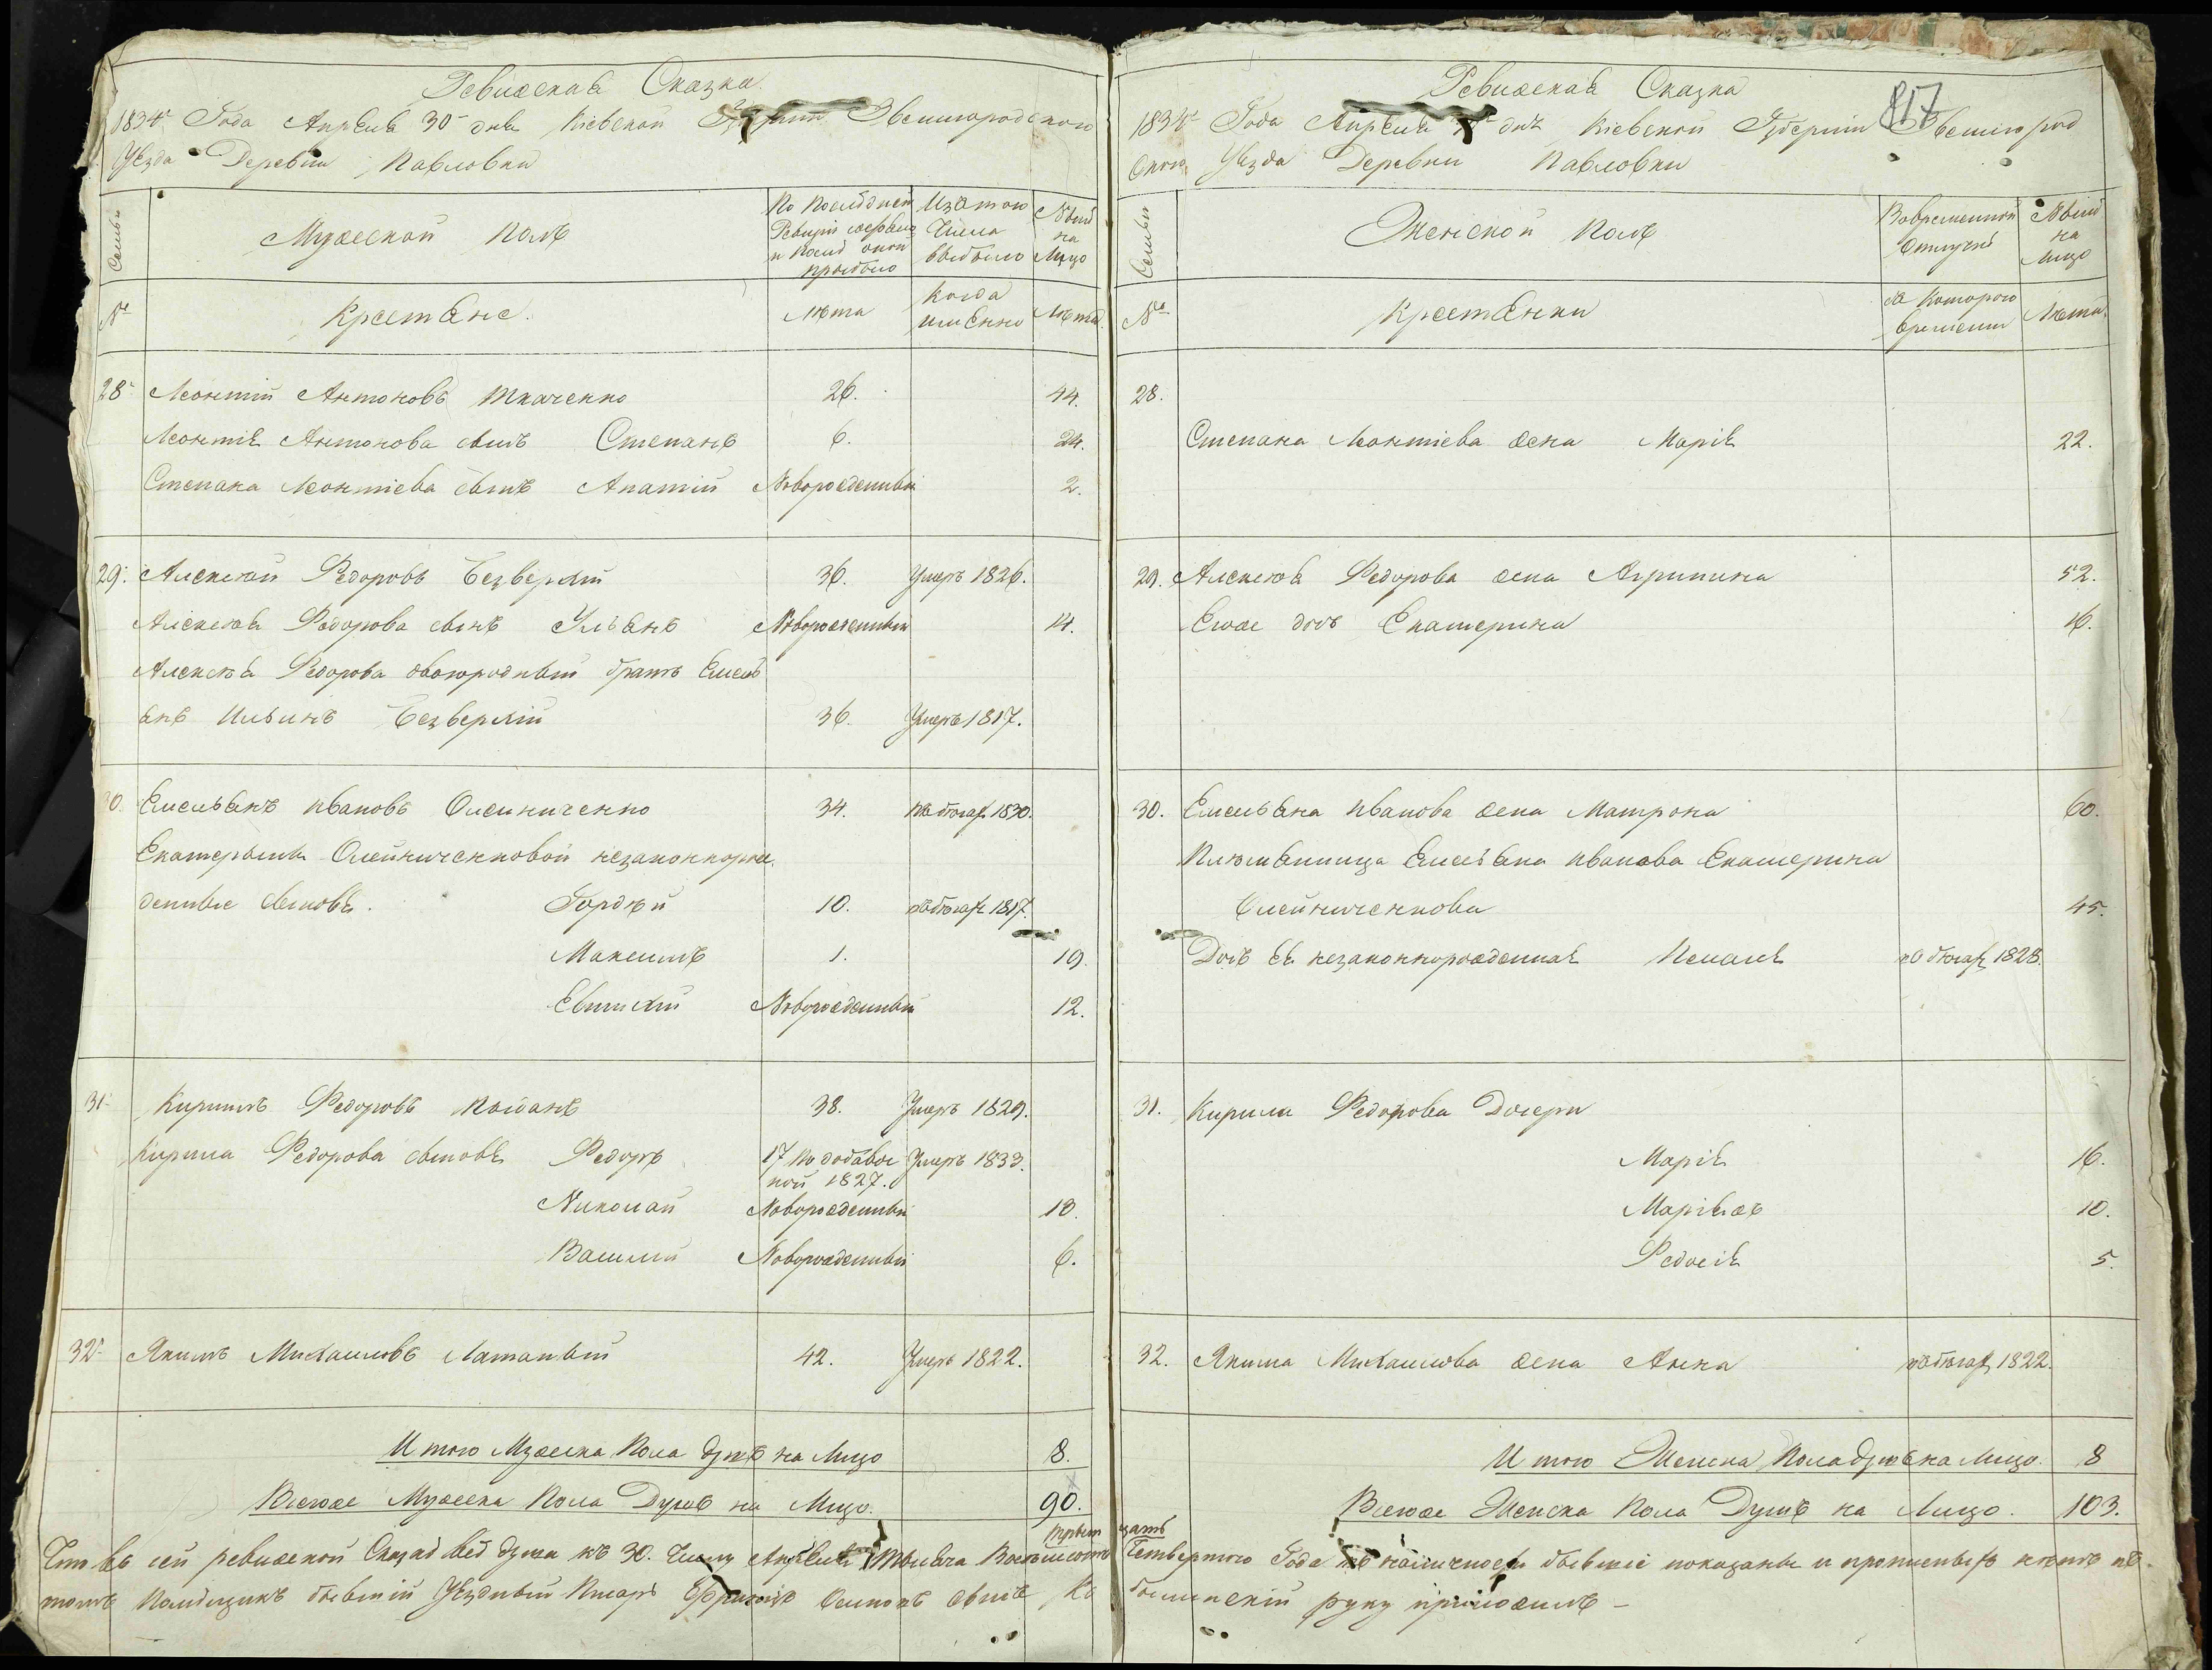 Ревижская Сказка.
1834го Года Апрѣля 30го дня Кіевской Губерніи Звенигородского
Уѣзда Деревни Павловки
Семьи
Мужеской Полъ
По последней Ревизіи состояло и после оной прибыло
Изъ того Числа выбыло
Ныне на Лицо
№
Крестяне.
Лѣта
Когда имянно
Лѣта.
28. Леонтій Антоновъ Ткаченко 26. 44.
Леонтія Антонова сынъ Степанъ 6. 24.
Степана Леонтіева сынъ Новорожденный 2.
29. Алексѣй Федоровъ Безверхій 36. Умеръ 1826.
Алексѣя Федорова сынъ Ульянъ Новорожденный 14.
Алексѣя Федорова двоюродный братъ Емель
янъ Ильинъ Безверхій 36. Умеръ 1817.
30. Емельянъ Ивановъ Олейниченко 34. въ бѣгахъ 1830.
Екатерыны Олейниченковой незаконнорож
денные сыновья. Гордѣй 10. въ бѣгахъ 1817.
Максимъ 1. 19.
Евтихій Новорожденный 12.
31. Кирилъ Федоровъ 38. Умеръ 1829.
Кирила Федорова сыновья Федоръ 17 по добавоч Умеръ 1833.
ной 1827.
Николай Новорожденный 10.
Василій Новорожденный 6.
32. Якимъ Михайловъ Латаный 42. Умеръ 1822.
И того Мужеска Пола душъ на Лицо 8.
Всего же Мужеска Пола Душъ на Лицо. 90.
Ревижская Сказка
817
1834го Года Апрѣля дня Кіевской Губерніи Звенигород
ского Уѣзда Деревни Павловки
Семьи
Женской Полъ
Во временной отлучкѣ
Ныне на Лицо
№
Крестянки
Съ Которого времени
Лѣта.
28.
Степана Леонтіева жена Марія 22.
29. Алексѣя Федорова жена Агрипина 52.
Его же дочь Екатерина 16.
30. Емельяна Иванова жена Матрона 60.
Племянница Емельяна Иванова Екатерина
Олейниченкова 45.
Дочь ея незаконнорожденная въ бѣгах 1828.
31. Кирила Федорова Дочери
Марія 16.
Марія же 10.
Федосія 5.
32. Якима Михайлова жена Анна въ бѣгах 1822.
И того Женска Пола душъ на Лицо. 8
Всего же Женска Пола Душъ на Лицо. 103.
Что въ сей ревижской Сказке все душа къ 30. Числу Апреля Тысяча Восемьсотъ трыт цать Четвертого Года въ наличности бывшіе показаны и прописныхъ нетъ въ
томъ Помещикъ бывшій Уездный Осиповъ сынъ руку приложилъ –